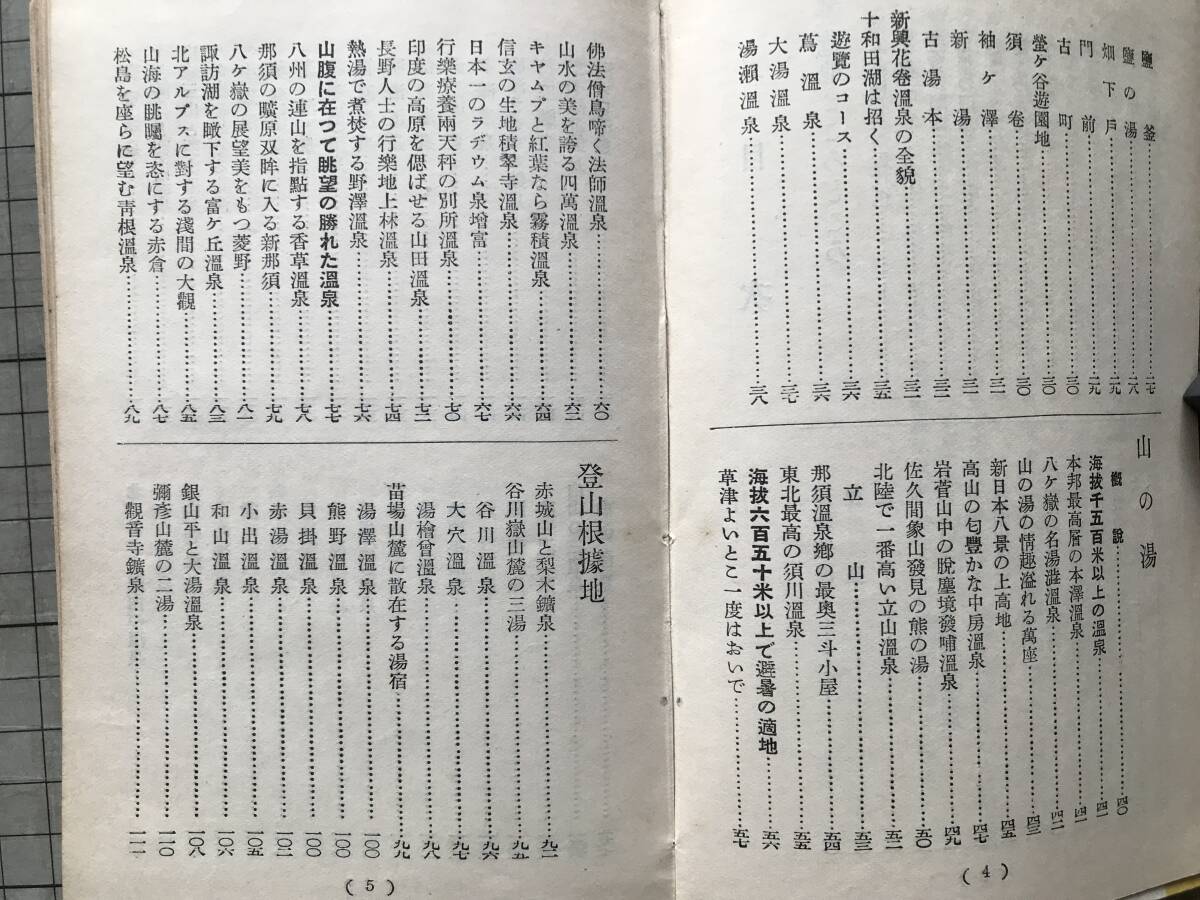 鹽釜…………二七
鹽の湯…………二八
畑下戸…………二九
門前…………二九
古町…………三〇
螢ケ谷遊園地…………三〇
須卷…………三〇
袖ケ澤…………三一
新湯…………三一
古湯本…………三二
新興花卷溫泉の全貌…………三二
十和田湖は招く…………三五
遊覽のコース…………三六
蔦溫泉…………三六
大湯溫泉…………三七
湯瀨溫泉…………三八
山の湯
槪說…………四〇
海拔千五百米以上の溫泉…………四一
本邦最高層の本澤溫泉…………四一
八ケ嶽の名湯澁溫泉…………四二
山の湯の情趣溢れる萬座…………四三
新日本八景の上高地…………四五
高山の匂豐かな中房溫泉…………四七
岩菅山中の脫塵境發哺溫泉…………四九
佐久間象山發見の熊の湯…………五〇
北陸で一番高い立山溫泉…………五二
立山…………五三
那須溫泉鄕の最奧三斗小屋…………五四
東北最高の須川溫泉…………五五
海拔六百五十米以上で避暑の適地…………五六
草津よいとこ一度はおいで…………五七
(4)
佛法僧鳥啼く法師溫泉…………六〇
山水の美を誇る四萬溫泉…………六二
キヤムプと紅葉なら霧積溫泉…………六四
信玄の生地積翠寺溫泉…………六六
日本一のラヂウム泉增富…………六七
行樂療養兩天秤の別所溫泉…………七〇
印度の高原を偲ばせる山田溫泉…………七二
長野人士の行樂地上林溫泉…………七四
熱湯で煮焚する野澤溫泉…………七六
山腹に在つて眺望の勝れた溫泉…………七七
八州の連山を指點する香草溫泉…………七八
那須の曠原双眸に入る新那須…………七九
八ケ嶽の展望美をもつ菱野…………八一
諏訪湖を瞰下する富ケ丘溫泉…………八三
北アルプスに對する淺間の大觀…………八五
山海の眺矚を恣にする赤倉…………八七
松島を座らに望む靑根溫泉…………八九
登山根據地
赤城山と梨木鑛泉…………九二
谷川嶽山麓の三湯…………九五
谷川溫泉…………九六
大穴溫泉…………九七
湯檜曾溫泉…………九八
苗場山麓に散在する湯宿…………九九
湯澤溫泉…………一〇〇
熊野溫泉…………一〇〇
貝掛溫泉…………一〇〇
赤湯溫泉…………一〇二
小出溫泉…………一〇五
和山溫泉…………一〇六
銀山平と大湯溫泉…………一〇八
彌彥山麓の二湯…………一一〇
觀音寺鑛泉…………一一一
(5)